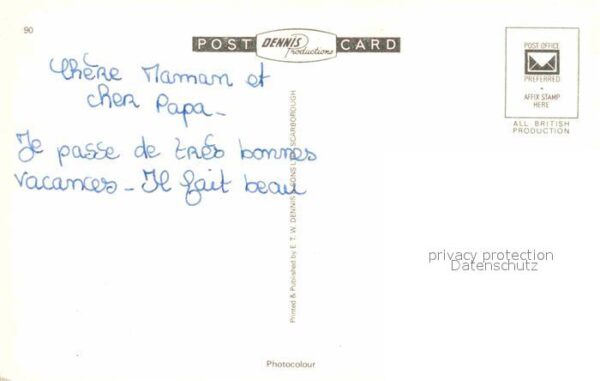 90
POST DENNIS Productions CARD
POST OFFICE
PREFERRED
AFFIX STAMP
HERE
ALL BRITISH
PRODUCTION
Chère Maman et
cher Papa -
Je passe de très bonnes
vacances - Il fait beau
Printed & Published by E. T. W. DENNIS & SONS LTD. SCARBOROUGH
privacy protection
Datenschutz
Photocolour